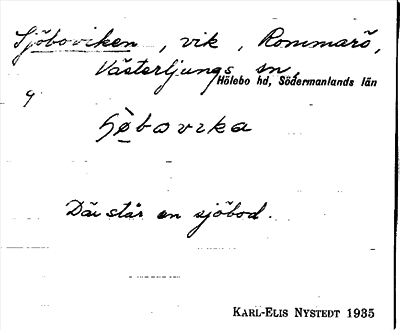 Sjöboviken, vik, Rommarö,
Västerljungs sn,
Hölebo hd, Södermanlands län
Där står en sjöbod.
KARL-ELIS NYSTEDT 1935